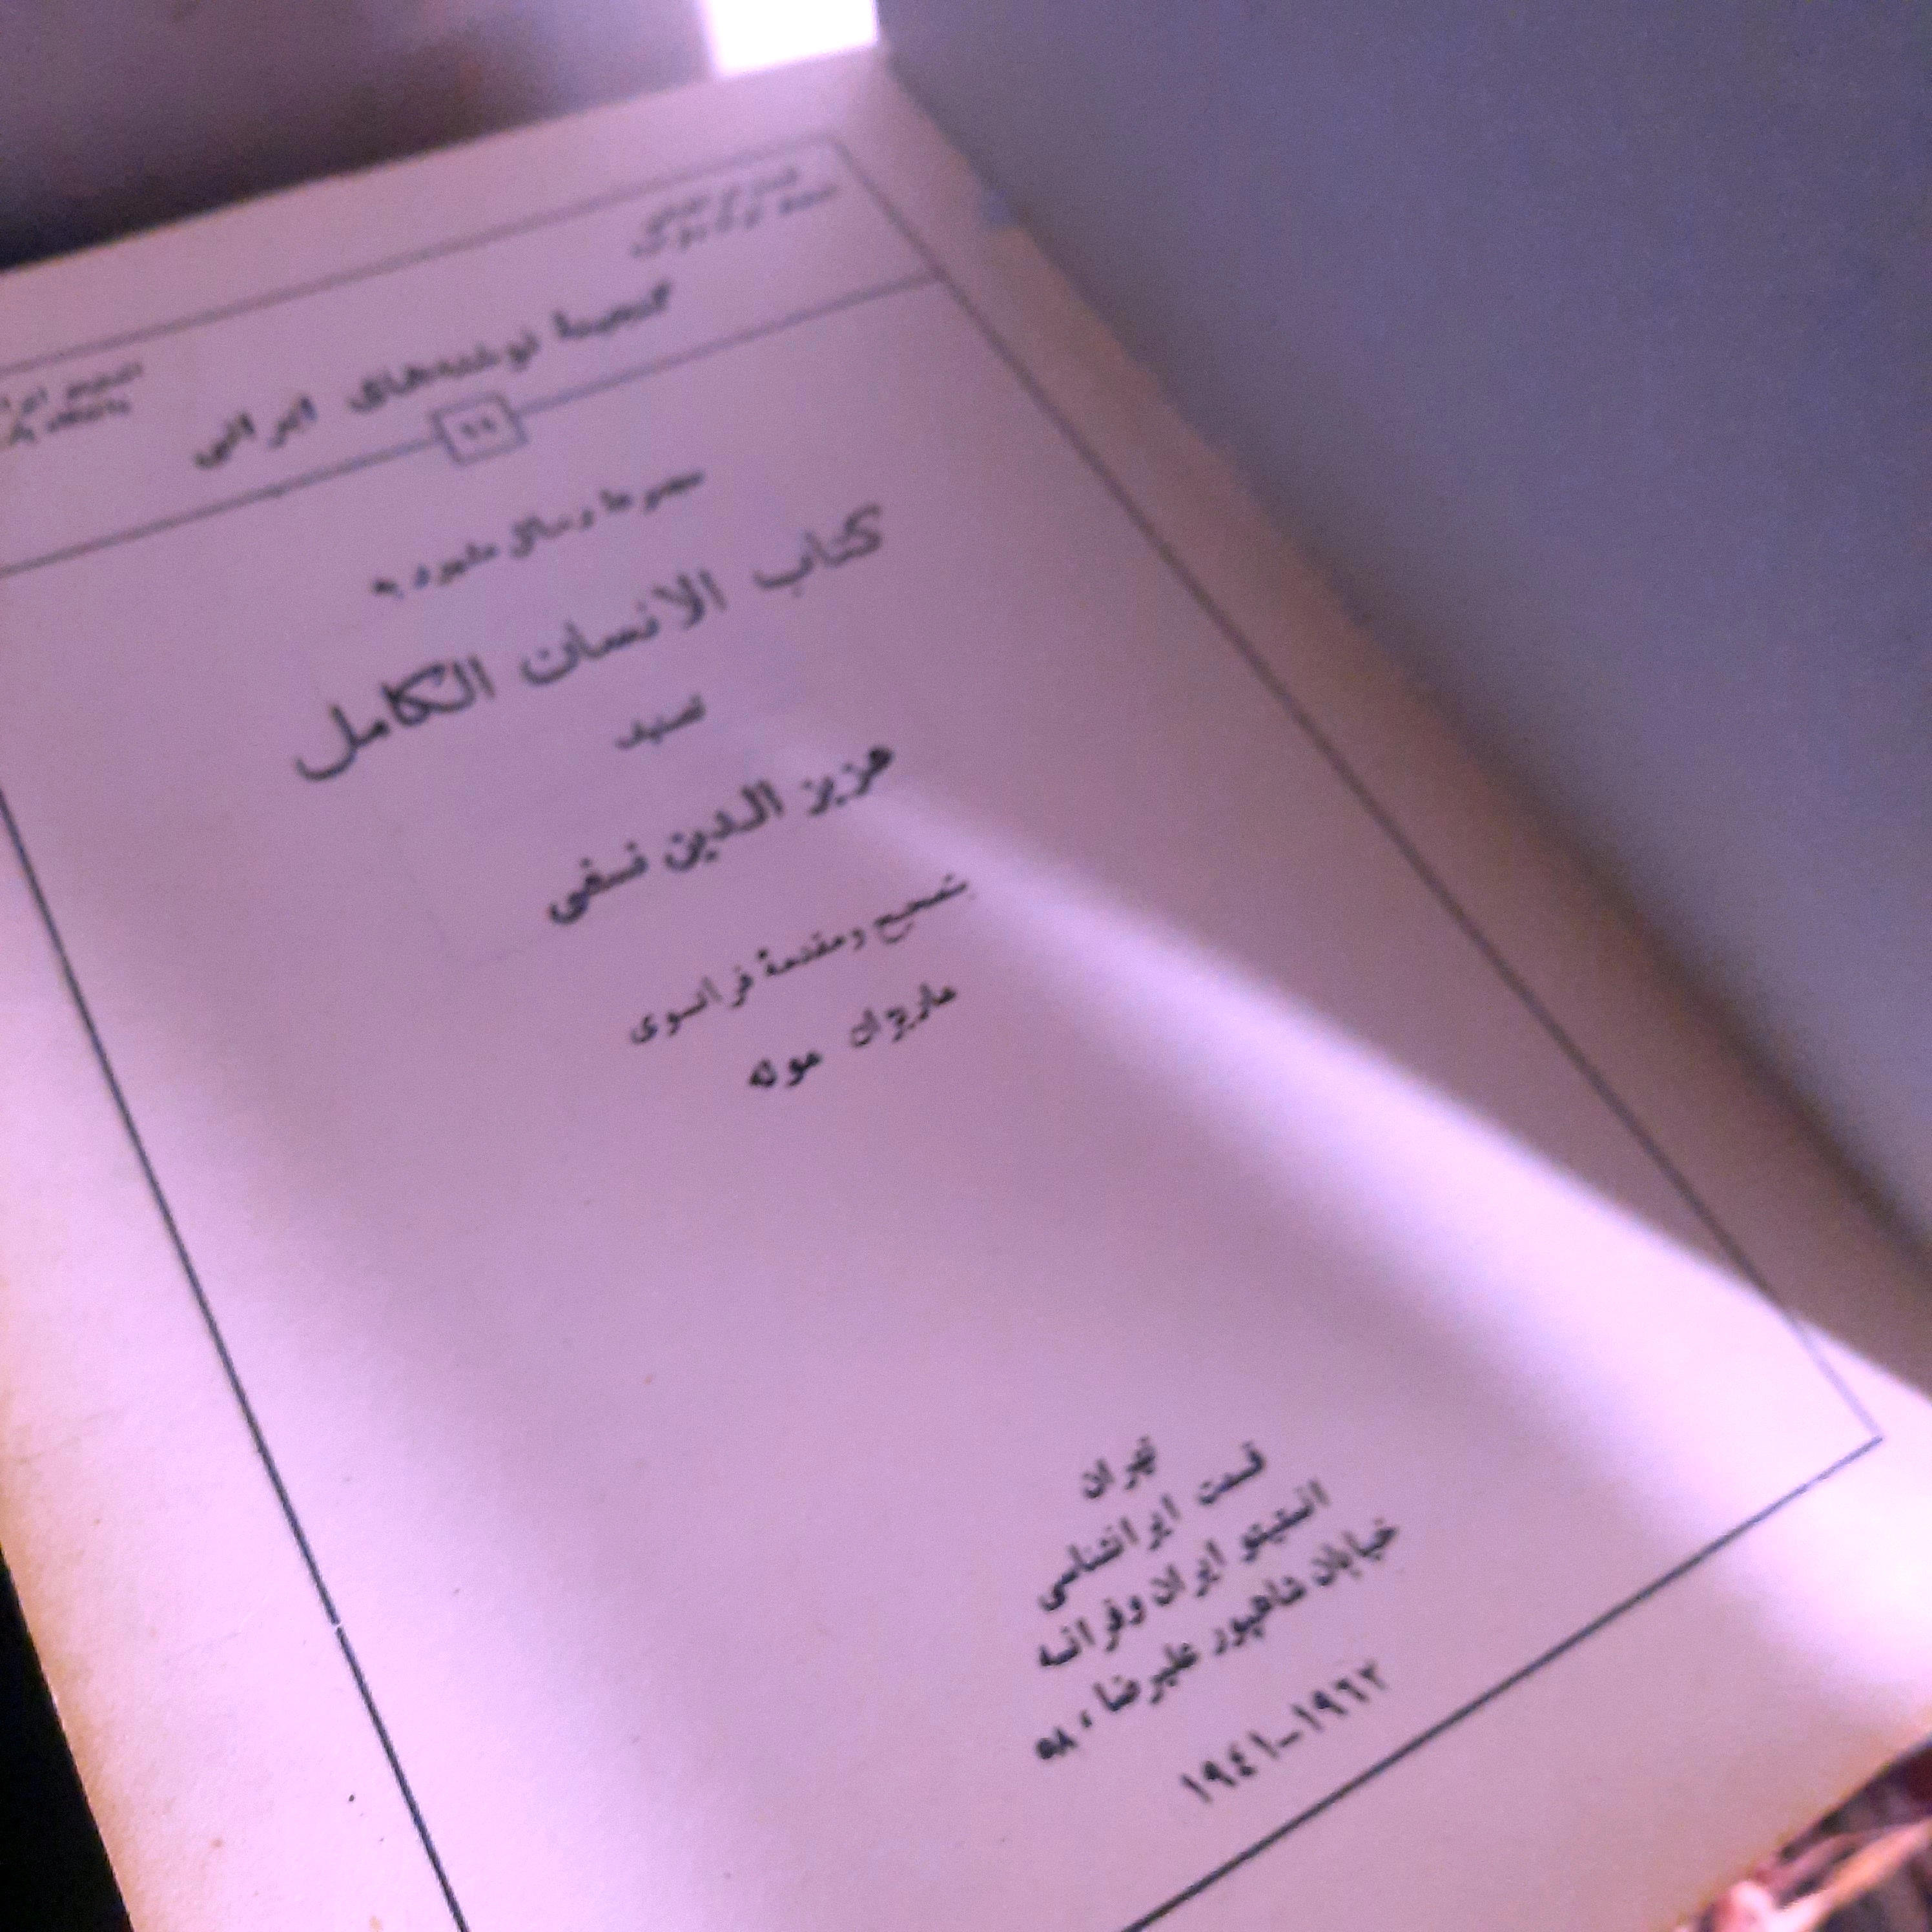 گنجینهٔ نوشته‌های ایرانی
۱۱
مجموعهٔ رسائل مشهور به
کتاب الانسان الکامل
تصنیف
عزیز الدین نسفی
بتصحیح ومقدمهٔ فرانسوی
ماریژان موله
تهران
قسمت ایرانشناسی
انستیتو ایران وفرانسه
خیابان شاهپور علیرضا، ۵۸
۱۹۶۲-۱۹۴۱